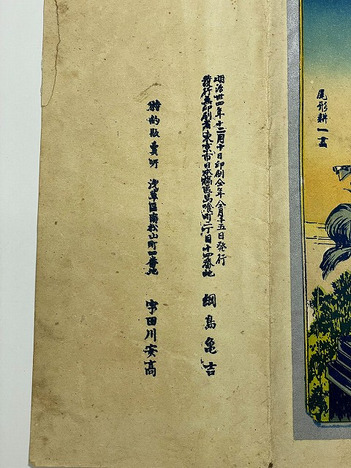 尾形耕一画
明治卅四年十二月十日印刷仝年仝月十五日発行
發行兼印刷者東京市日本橋区馬喰町二丁目十四番地
綱島亀吉
特約販賣所 浅草區南松山町四番地
宇田川安高